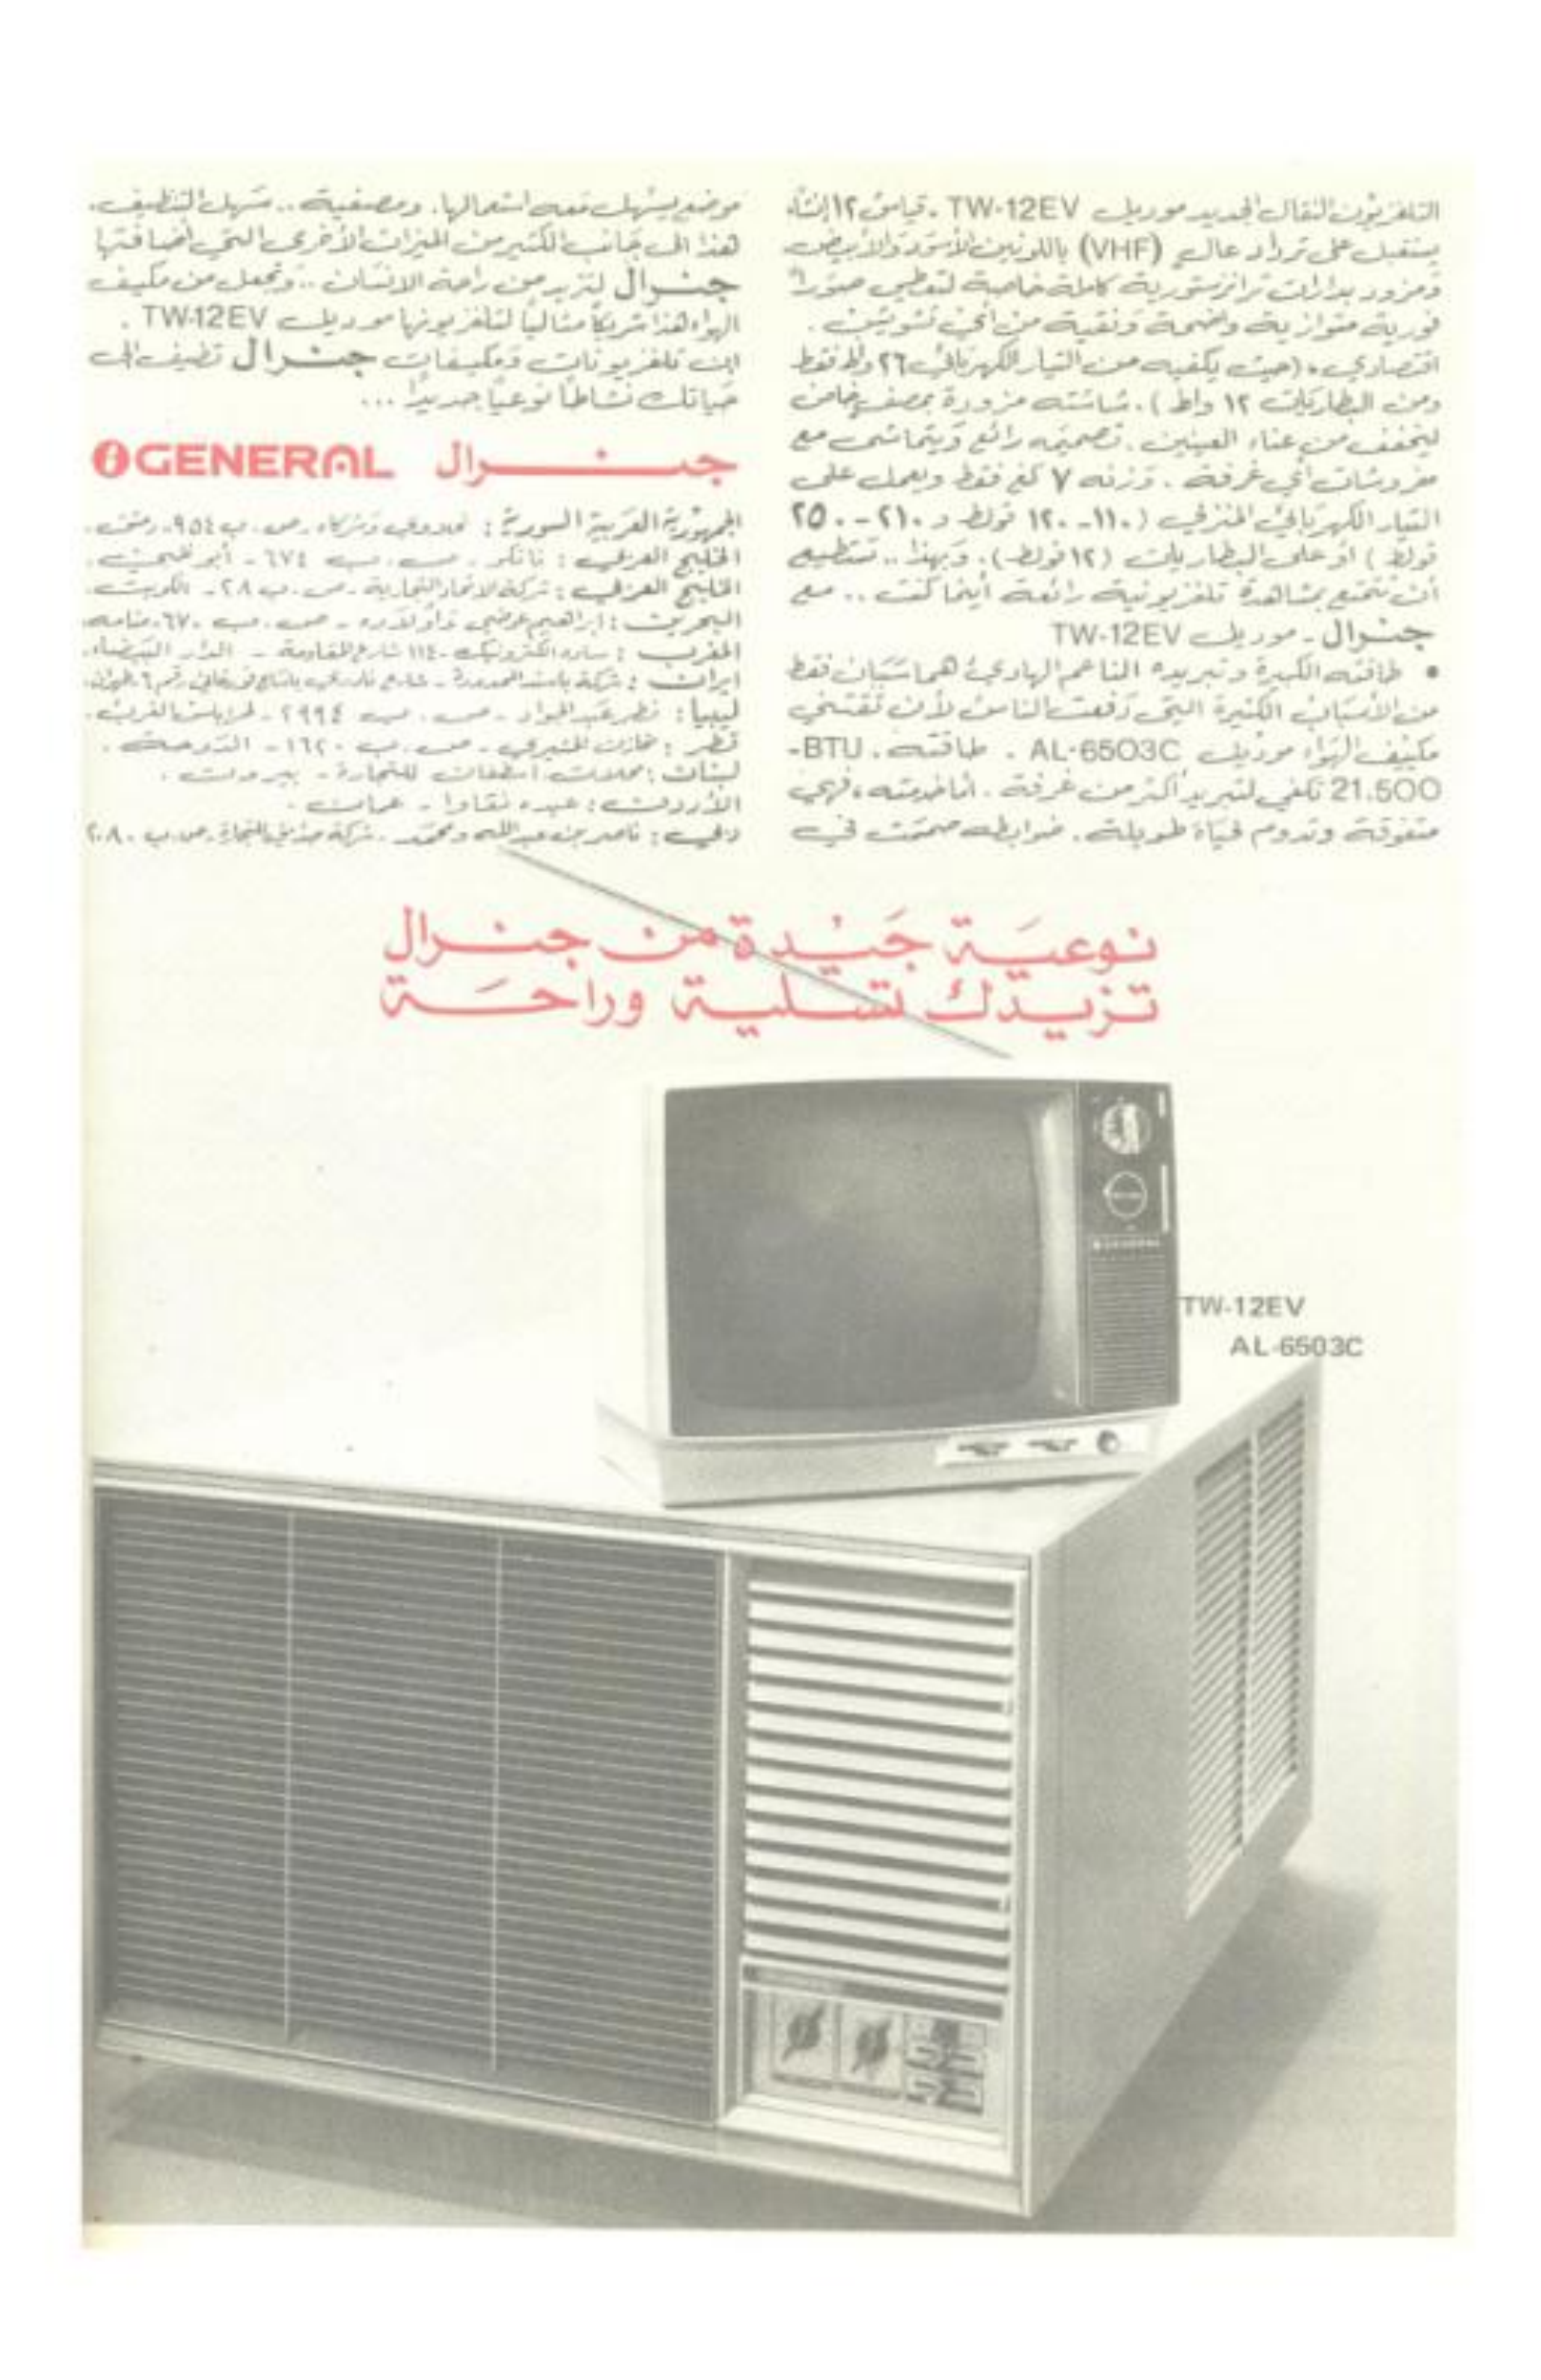 التلفزيون النقال الجديد موديل TW-12EV . قياس ١٢ إنشاً
يستقبل على تردد عالٍ (VHF) باللونين الأسود والأبيض
ومزود بدارات ترانزستورية كاملة خاصة لتعطي صوراً
فورية متوازية واضحة ونقية من أي تشويش .
اقتصادي ، (حيث يكفيه من التيار الكهربائي ٢٦ واط فقط
ومن البطاريات ١٢ واط ) . شاشته مزودة بمصفٍ خاص
ليخفف من عناء العينين . تصميمه رائع ويتماشى مع
مفروشات أي غرفة . وزنه ٧ كغ فقط ويعمل على
التيار الكهربائي المنزلي (١١٠-١٢٠ فولط و ٢١٠-٢٥٠
فولط ) او على البطاريات (١٢ فولط) . وبهذا .. تستطيع
أن تتمتع بمشاهدة تلفزيونية رائعة أينما كنت .. مع
جنرال - موديل TW-12EV
• طاقته الكبيرة وتبريده الناعم الهادئ هما سببان فقط
من الأسباب الكثيرة التي دفعت الناس لأن تقتني
مكيف الهواء موديل AL-6503C . طاقته . BTU-
21.500 تكفي لتبريد أكثر من غرفة . أما خدمته ، فهي
متفوقة وتدوم لحياة طويلة . ضوابطه صممت في
موضع يسهل معه استعمالها . ومصفيه .. سهل التنظيف .
هذا الى جانب الكثير من الميزات الأخرى التي أضافتها
جنرال لتزيد من راحة الانسان .. وتجعل من مكيف
الهواء هذا شريكاً مثالياً لتلفزيونها موديل TW-12EV .
ان تلفزيونات ومكيفات جنرال تضيف الى
حياتك نشاطاً نوعياً جديداً ...
جنرال GENERAL
الجمهورية العربية السورية : وشركاه . ص . ب ٩٥٤ . دمشق .
الخليج العربي : نانكو . ص . ب ٦٧٤ - أبو ظبي .
الخليج العربي : شركة الاتحاد التجارية . ص . ب ٢٨ - الكويت .
البحرين : ابراهيم عوضي وأولاده - ص . ب ٦٧٠ . منامه .
المغرب : الكترونيك - ١١٤ شارع المقاومة - الدار البيضاء .
ايران : شركة المحدودة - شارع رقم ٦ . طهران .
ليبيا : نصر عبد الجواد - ص . ب ٢٩٩٤ - طرابلس الغرب .
قطر : مخازن - ص . ب ١٦٢٠ - الدوحة .
لبنان : محلات اسطفان للتجارة - بيروت .
الأردن : عبده نقاوا - عمان .
دبي : ناصر بن عبدالله ومحمد . شركة للتجارة . ص . ب ٢٠٨٠
نوعية جيدة من جنرال
تزيدك تسلية وراحة
GENERAL
TW-12EV
AL-6503C